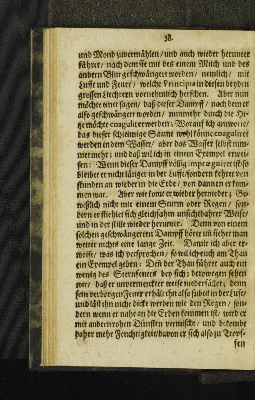 38.
und Mond zuvermählen / und auch wieder herunter
führet / nach dem sie mit des einem Milch und des
andern Blut geschwängert worden / nemlich / mit
Lufft und Feuer / welche Principia in diesen beyden
grossen Liechtern vornehmlich herschen. Aber nun
möchte einer sagen / daß dieser Dampff / nach dem er
also geschwängert worden / nunmehr durch die Hi-
tze möchte coaguliret werden. Worauf ich antworte /
das dieser schleimige Saame wohl könne coaguliret
werden in dem Wasser / aber das Wasser selbst nim-
mermehr; und das will ich in einem Exempel erwei-
sen: Wenn dieser Dampff völlig imprægniret ist / so
bleibet er nicht länger in der Lufft / sondern kehret von
stunden an wieder in die Erde / von dannen er kom-
men war. Aber wie kommt er wieder hernieder? Ge-
wißlich nicht wie einem Sturm oder Regen / son-
dern er stiehlet sich gleichsam unsichtbahrer Weise /
und in der stille wieder herunter. Denn von einem
solchen geschwängerten Dampff höret und siehet man
weiter nichts eine lange Zeit. Damit ich aber er-
weise / was ich versprochen / so will ich euch am Thau
ein Exempel geben: Denn der Thau führet auch ein
wenig des Sternfeuers bey sich; deßwegen sehen
wir / daß er unvermerckter weise niederfället; denn
sein verborgen Feuer erhält ihn also subtil in der Lufft /
und läst ihn nicht dicke werden wie den Regen / son-
dern wenn er nahe an die Erden kommen ist / wird er
mit andern rohen Dünsten vermischt / und bekomt
daher mehr Feuchtigkeit / davon er sich also zu Tropf-
fen